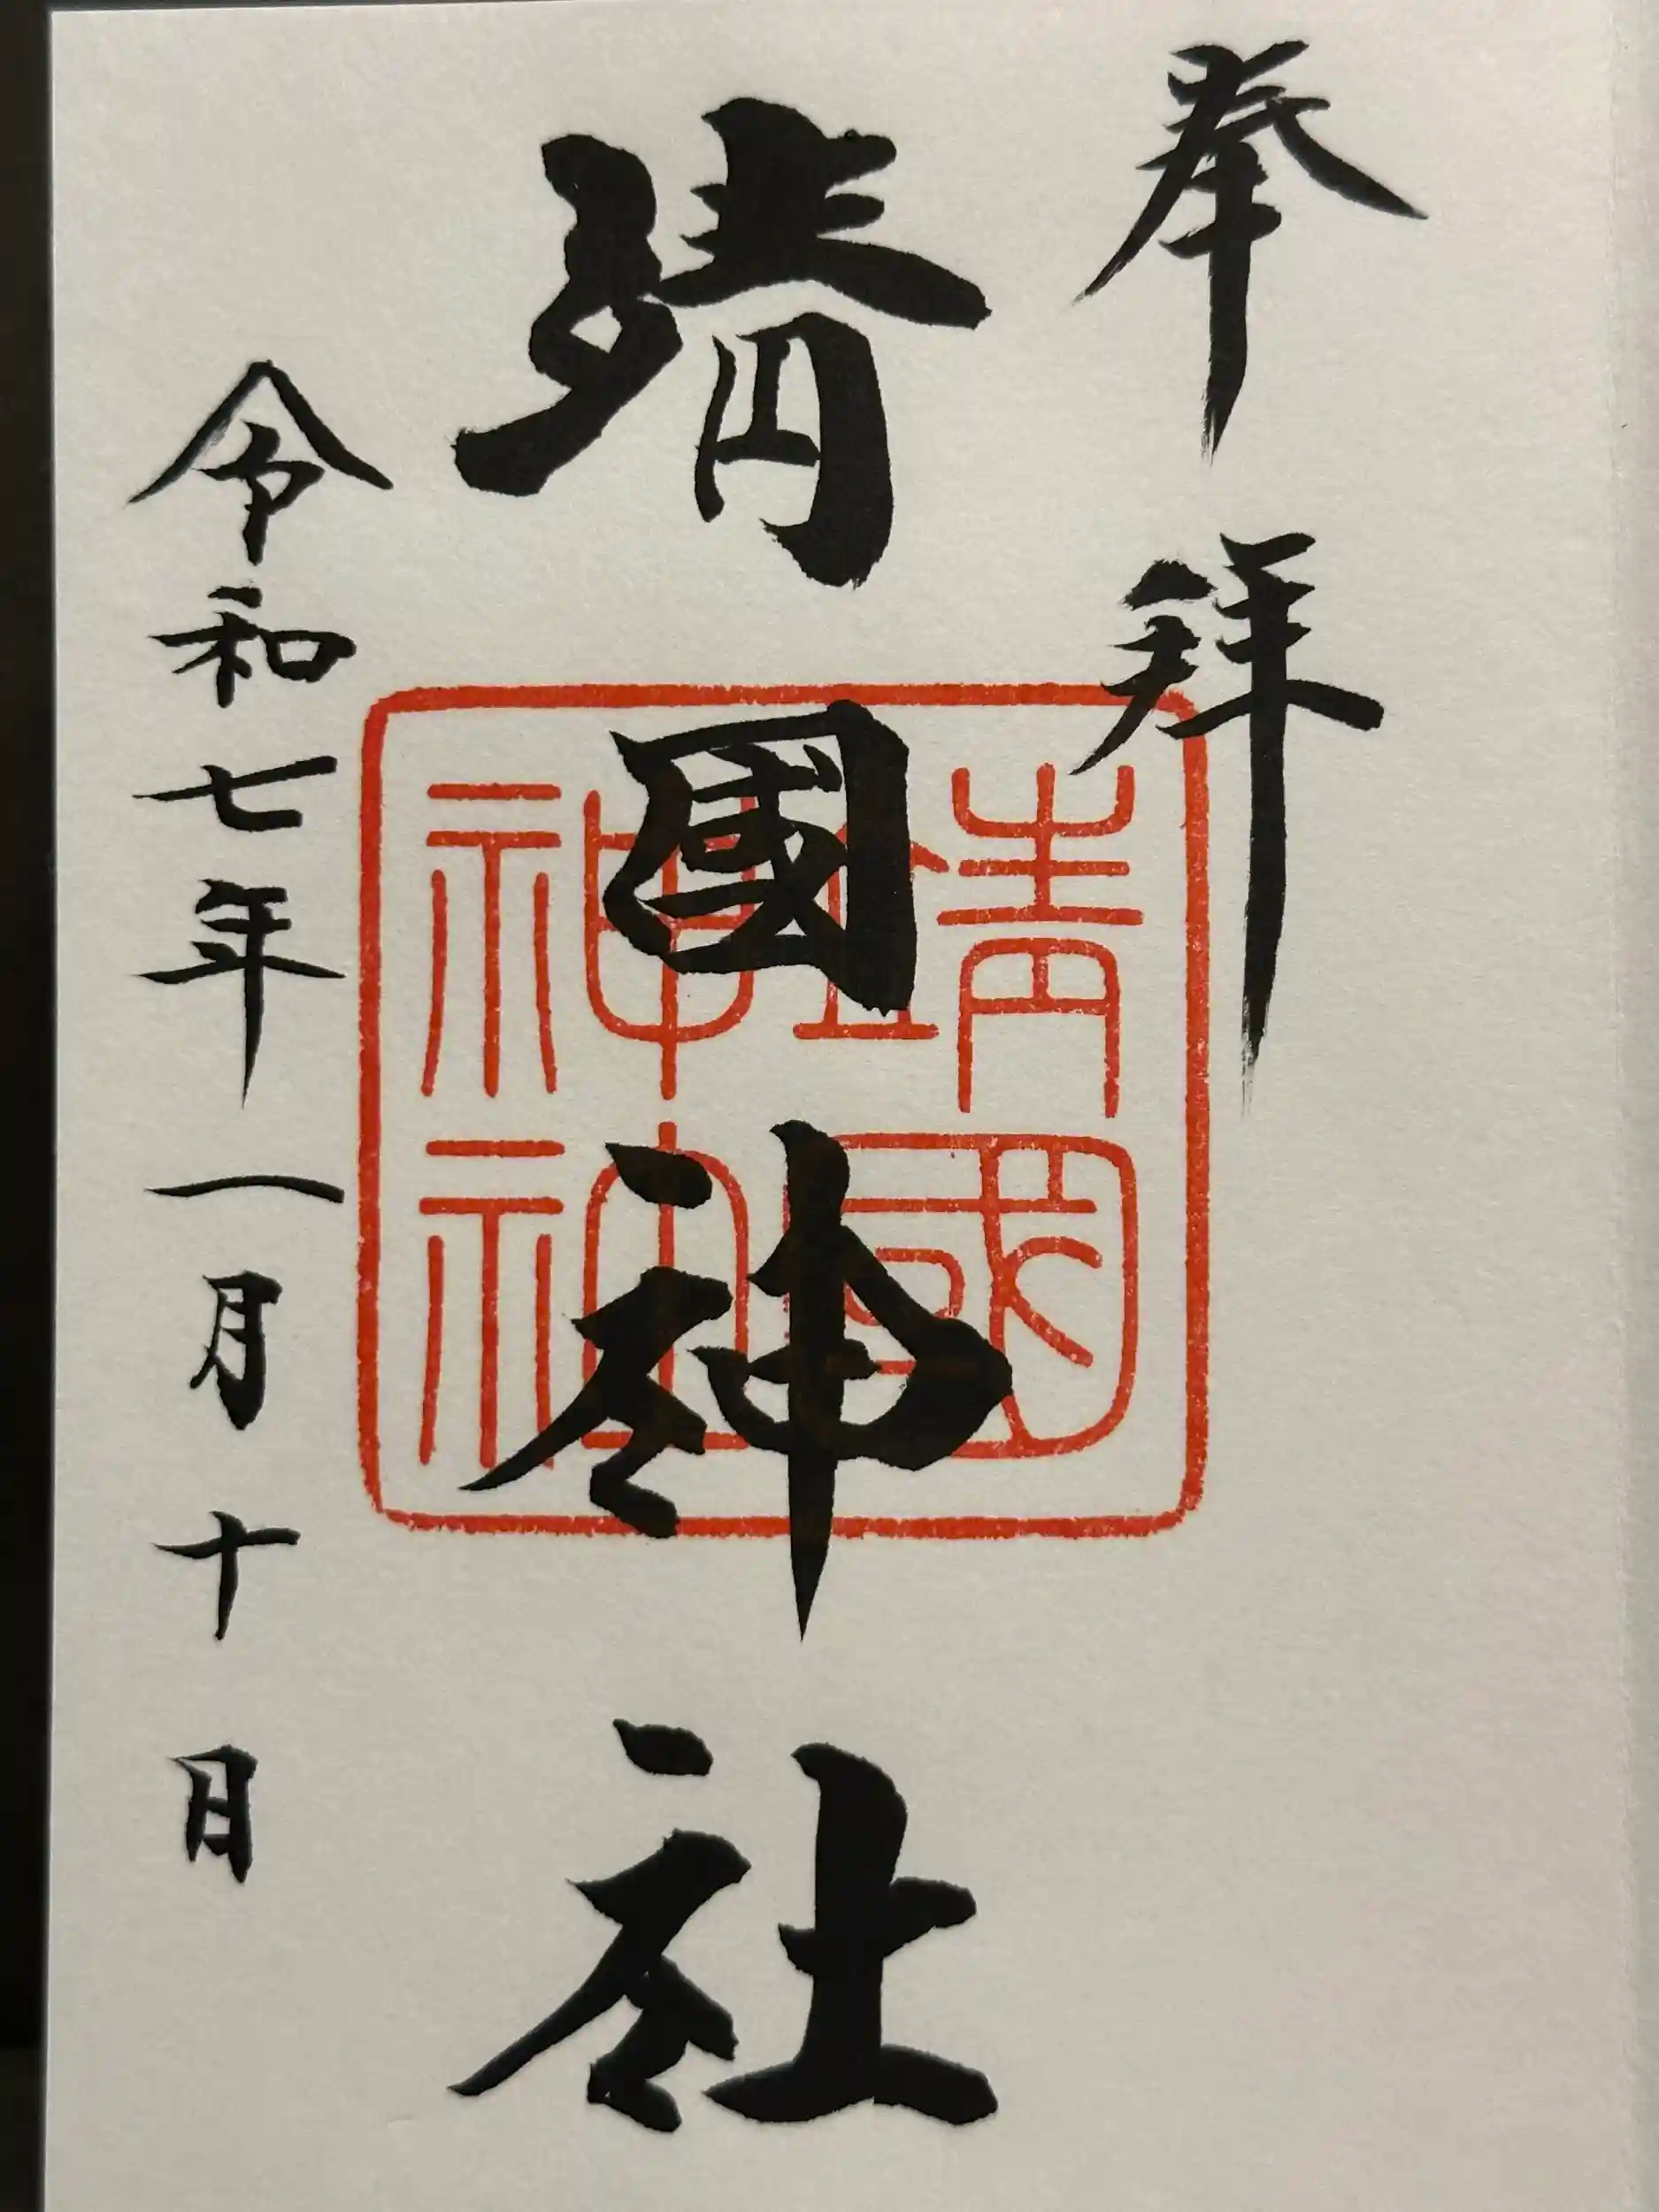 奉拝
靖國神社
靖國神社
令和七年一月十日